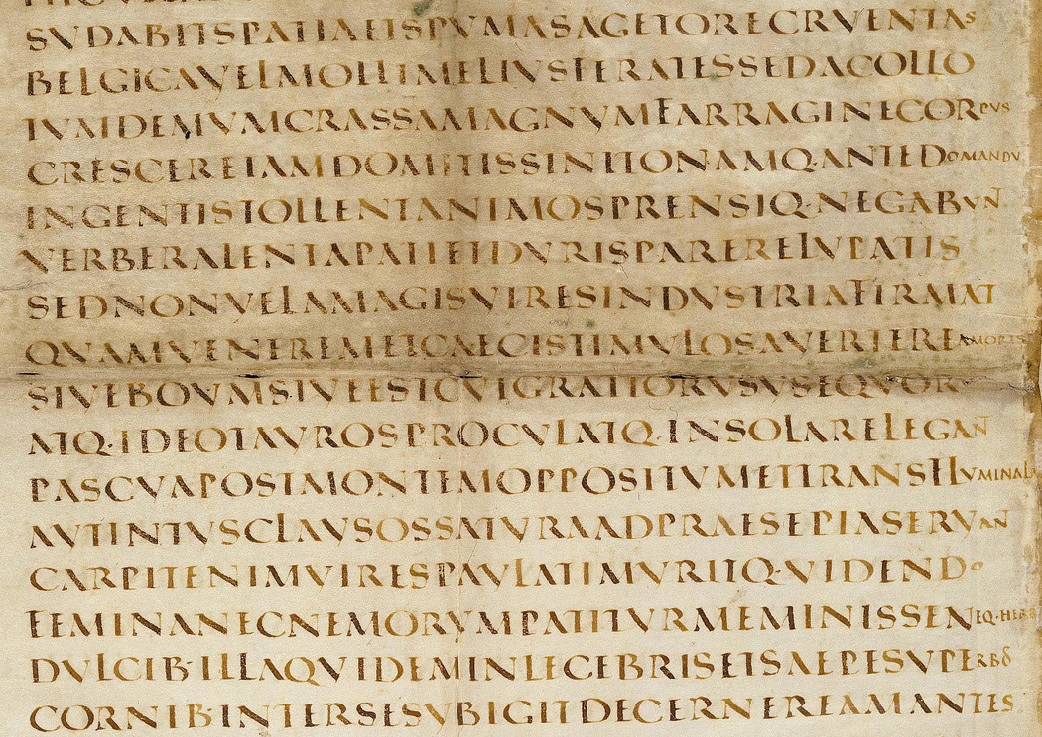 SVDABITSPATIAETSPVMASAGETORECRVENTAS
BELGICAVELMOLLIMELIVSFERATESSEDACOLLO
TVMDEMVMCRASSAMAGNVMFARRAGINECORPVS
CRESCEREIAMDOMITISSINITONAMQ·ANTEDOMANDV
INGENTISTOLLENTANIMOSPRENSIQ·NEGABVNT
VERBERALENTAPATIETDVRISPARERELVPATIS
SEDNONVELAMAGISVIRESINDVSTRIAFIRMAT
QVAMVENEREMETCAECISTIMVLOSAVERTEREAMORIS
SIVEBOVMSIVEESTCVIGRATIORVSVSEQVOR
ATQ·IDEOTAVROSPROCVLATQ·INSOLARELEGANT
PASCVAPOSTMONTEMOPPOSITVMETTRANSFLVMINALA
AVTINTVSCLAVSOSSATVRAADPRAESEPIASERVANT
CARPITENIMVIRESPAVLATIMVRITQ·VIDENDO
FEMINANECNEMORVMPATITVRMEMINISSENEQ·HERB
DVLCIB·ILLAQVIDEMINLECEBRISETSAEPESVPERBOS
CORNIB·INTERSESVBIGITDECERNEREAMANTES